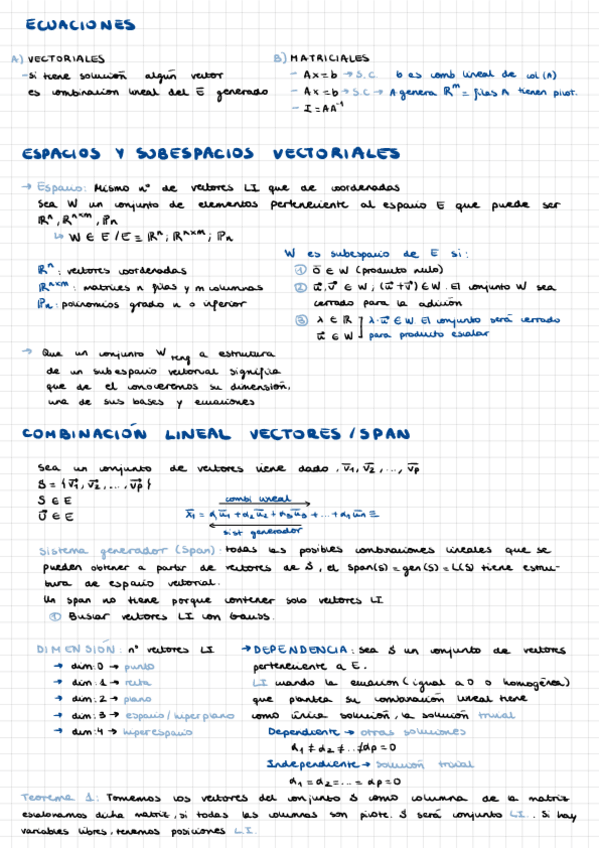 ECUACIONES
A) VECTORIALES
- si tiene solución algún vector
es combinacion lineal del E generado
B) MATRICIALES
- Ax=b → S.C. b es comb lineal de col(A)
- Ax=b → S.C → A genera ℝᵐ = filas A tienen pivot.
- I = AA⁻¹
ESPACIOS Y SUBESPACIOS VECTORIALES
→ Espacio: Mismo nº de vectores LI que de coordenadas
Sea W un conjunto de elementos perteneciente al espacio E que puede ser
ℝⁿ, ℝⁿˣᵐ, ℙn
↳ W ∈ E / E = ℝⁿ; ℝⁿˣᵐ; ℙn
ℝⁿ: vectores coordenadas
ℝⁿˣᵐ: matrices n filas y m columnas
ℙn: polinomios grado n o inferior
W es subespacio de E si:
① 0 ∈ W (producto nulo)
② u⃗, v⃗ ∈ W ; (u⃗+v⃗) ∈ W. El conjunto W sea
cerrado para la adición
③ λ ∈ ℝ ] λ·u⃗ ∈ W. El conjunto será cerrado
u⃗ ∈ W ] para producto escalar
→ Que un conjunto W tenga estructura
de un subespacio vectorial significa
que de el conoceremos su dimensión,
una de sus bases y ecuaciones
COMBINACIÓN LINEAL VECTORES / SPAN
Sea un conjunto de vectores viene dado, v̄₁, v̄₂, ..., v̄p
S = {v⃗₁, v⃗₂, ..., v⃗p}
S ∈ E
U⃗ ∈ E
combi lineal
sist generador
Sistema generador (Span): todas las posibles combinaciones lineales que se
pueden obtener a partir de vectores de S, el span(S) = gen(S) = L(S) tiene estruc-
tura de espacio vectorial.
Un span no tiene porque contener solo vectores LI
① Buscar vectores LI con Gauss.
DIMENSIÓN: nº vectores LI
→ dim: 0 → punto
→ dim: 1 → recta
→ dim: 2 → plano
→ dim: 3 → espacio / hiperplano
→ dim: 4 → hiperespacio
→ DEPENDENCIA: sea S un conjunto de vectores
perteneciente a E.
LI cuando la ecuación (igual a 0 o homogénea)
que plantea su combinación lineal tiene
como única solución, la solución trivial
Dependiente → otras soluciones
α₁ ≠ α₂ ≠ ... ≠ αp = 0
Independiente → solución trivial
α₁ = α₂ = ... = αp = 0
Teorema 1: Tomemos los vectores del conjunto S como columna de la matriz
escalonamos dicha matriz, si todas las columnas son pivote. S será conjunto LI.. Si hay
variables libres, tenemos posiciones L.I.